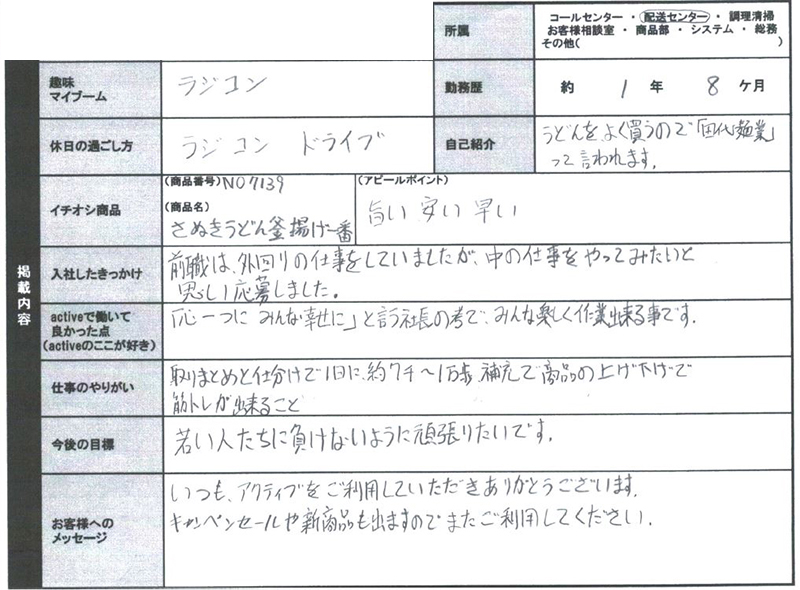 所属
コールセンター ・ 配送センター ・ 調理清掃
お客様相談室 ・ 商品部 ・ システム ・ 総務
その他( )
趣味
マイブーム
ラジコン
勤務歴
約 1 年 8 ケ月
休日の過ごし方
ラジコン ドライブ
自己紹介
うどんをよく買うので「田代麺業」
って言われます。
掲載内容
イチオシ商品
(商品番号) NO7139
(商品名)
さぬきうどん釜揚げ一番
(アピールポイント)
旨い 安い 早い
入社したきっかけ
前職は、外回りの仕事をしていましたが、中の仕事をやってみたいと
思い応募しました。
activeで働いて
良かった点
(activeのここが好き)
「心一つに みんな幸せに」と言う社長の考で、みんな楽しく作業出来る事です。
仕事のやりがい
取りまとめと仕分けで1日に、約7千〜1万歩 補充で商品の上げ下げで
筋トレが出来ること
今後の目標
若い人たちに負けないように頑張りたいです。
お客様への
メッセージ
いつも、アクティブをご利用していただきありがとうございます。
キャンペンセールや新商品も出ますのでまたご利用してください。